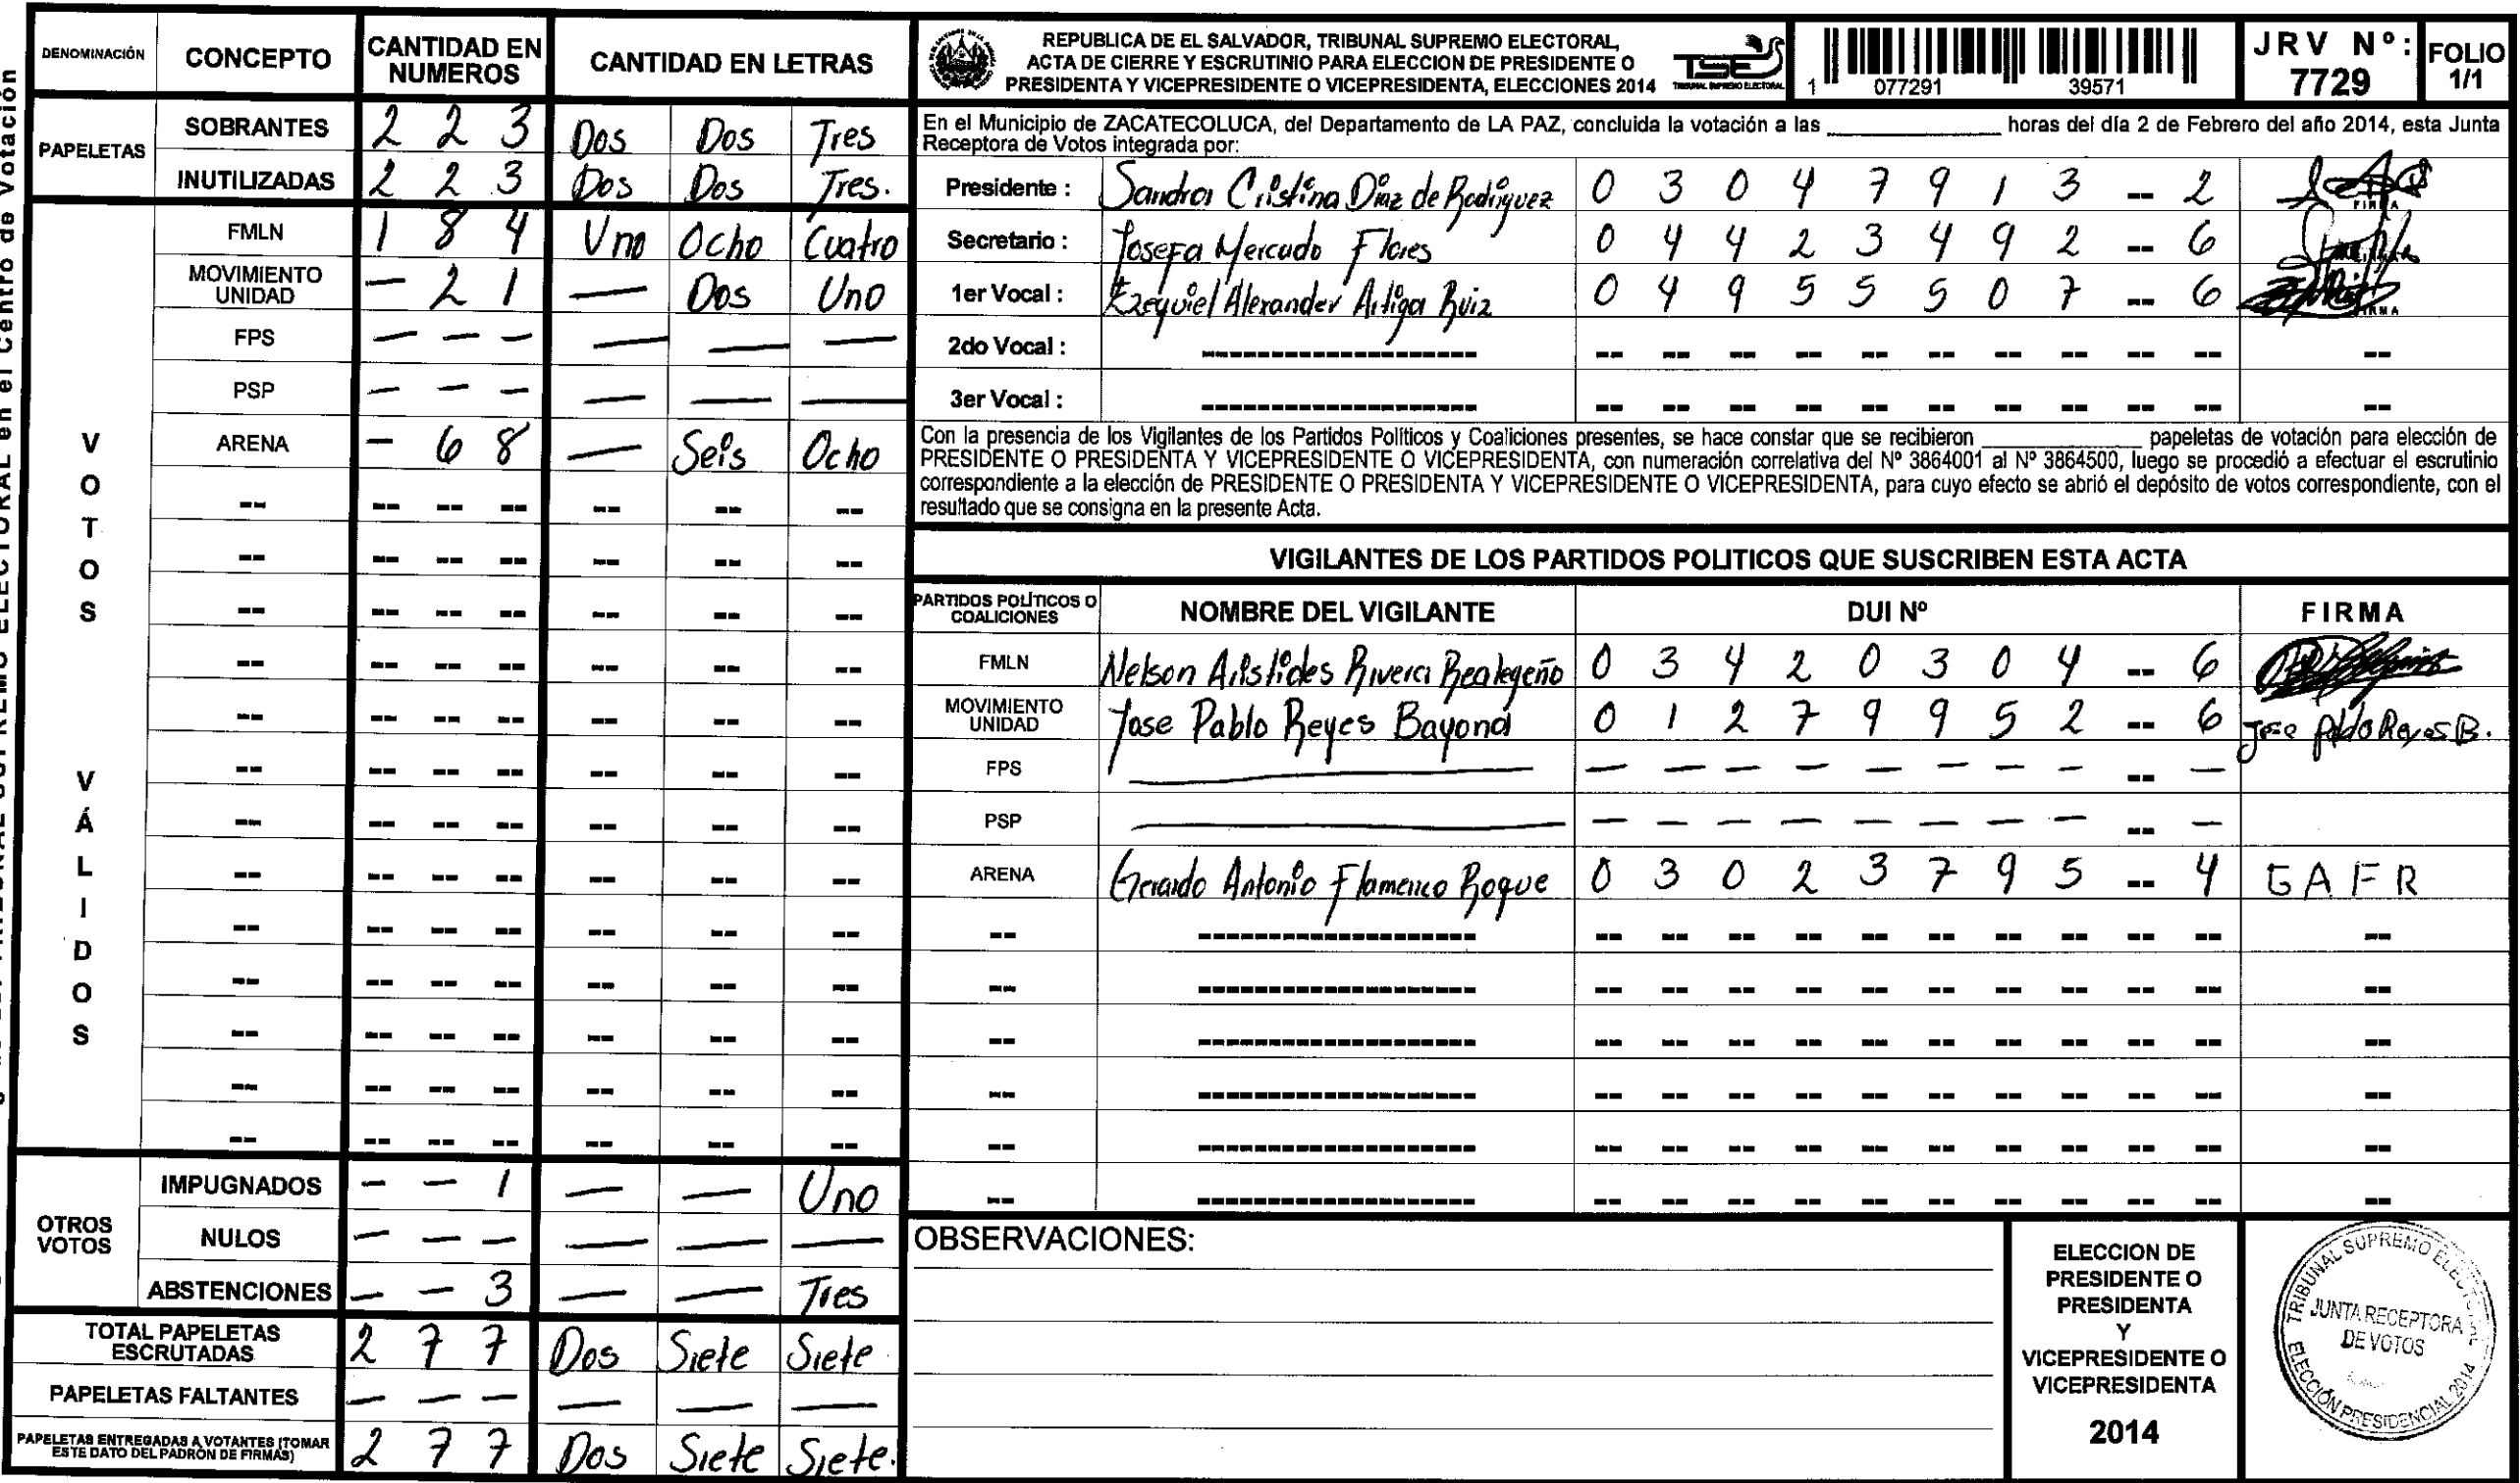 DENOMINACIÓN CONCEPTO CANTIDAD EN NUMEROS CANTIDAD EN LETRAS
PAPELETAS
SOBRANTES 2 2 3 Dos Dos Tres
INUTILIZADAS 2 2 3 Dos Dos Tres.
VOTOS VÁLIDOS
FMLN 1 8 4 Uno Ocho Cuatro
MOVIMIENTO UNIDAD — 2 1 — Dos Uno
FPS — — — — — —
PSP — — — — — —
ARENA — 6 8 — Seis Ocho
-- -- -- -- -- -- --
-- -- -- -- -- -- --
-- -- -- -- -- -- --
-- -- -- -- -- -- --
-- -- -- -- -- -- --
-- -- -- -- -- -- --
-- -- -- -- -- -- --
-- -- -- -- -- -- --
-- -- -- -- -- -- --
-- -- -- -- -- -- --
-- -- -- -- -- -- --
-- -- -- -- -- -- --
-- -- -- -- -- -- --
OTROS VOTOS
IMPUGNADOS — — 1 — — Uno
NULOS — — — — — —
ABSTENCIONES — — 3 — — Tres
TOTAL PAPELETAS ESCRUTADAS 2 7 7 Dos Siete Siete
PAPELETAS FALTANTES — — — — — —
PAPELETAS ENTREGADAS A VOTANTES (TOMAR ESTE DATO DEL PADRÓN DE FIRMAS) 2 7 7 Dos Siete Siete.
REPUBLICA DE EL SALVADOR, TRIBUNAL SUPREMO ELECTORAL,
ACTA DE CIERRE Y ESCRUTINIO PARA ELECCION DE PRESIDENTE O
PRESIDENTA Y VICEPRESIDENTE O VICEPRESIDENTA, ELECCIONES 2014
TSE
TRIBUNAL SUPREMO ELECTORAL
1 077291 39571
JRV Nº: 7729
FOLIO 1/1
En el Municipio de ZACATECOLUCA, del Departamento de LA PAZ, concluida la votación a las ____________ horas del día 2 de Febrero del año 2014, esta Junta
Receptora de Votos integrada por:
Presidente : Sandra Cristina Díaz de Rodríguez 0 3 0 4 7 9 1 3 -- 2 FIRMA
Secretario : Josefa Mercado Flores 0 4 4 2 3 4 9 2 -- 6
1er Vocal : Ezequiel Alexander Artiga Ruiz 0 4 9 5 5 5 0 7 -- 6 FIRMA
2do Vocal : ------------------ -- -- -- -- -- -- -- -- -- -- --
3er Vocal : ------------------ -- -- -- -- -- -- -- -- -- -- --
Con la presencia de los Vigilantes de los Partidos Políticos y Coaliciones presentes, se hace constar que se recibieron ____________ papeletas de votación para elección de
PRESIDENTE O PRESIDENTA Y VICEPRESIDENTE O VICEPRESIDENTA, con numeración correlativa del Nº 3864001 al Nº 3864500, luego se procedió a efectuar el escrutinio
correspondiente a la elección de PRESIDENTE O PRESIDENTA Y VICEPRESIDENTE O VICEPRESIDENTA, para cuyo efecto se abrió el depósito de votos correspondiente, con el
resultado que se consigna en la presente Acta.
VIGILANTES DE LOS PARTIDOS POLITICOS QUE SUSCRIBEN ESTA ACTA
PARTIDOS POLÍTICOS O COALICIONES NOMBRE DEL VIGILANTE DUI Nº FIRMA
FMLN Nelson Arístides Rivera Realegeño 0 3 4 2 0 3 0 4 -- 6
MOVIMIENTO UNIDAD Jose Pablo Reyes Bayona 0 1 2 7 9 9 5 2 -- 6 Jose Pablo Reyes B.
FPS — — — — — — — — — -- —
PSP — — — — — — — — — -- —
ARENA Gerardo Antonio Flamenco Roque 0 3 0 2 3 7 9 5 -- 4 G A F R
-- ------------------ -- -- -- -- -- -- -- -- -- -- --
-- ------------------ -- -- -- -- -- -- -- -- -- -- --
-- ------------------ -- -- -- -- -- -- -- -- -- -- --
-- ------------------ -- -- -- -- -- -- -- -- -- -- --
-- ------------------ -- -- -- -- -- -- -- -- -- -- --
-- ------------------ -- -- -- -- -- -- -- -- -- -- --
OBSERVACIONES:
ELECCION DE
PRESIDENTE O
PRESIDENTA
Y
VICEPRESIDENTE O
VICEPRESIDENTA
2014
TRIBUNAL SUPREMO ELECTORAL
JUNTA RECEPTORA
DE VOTOS
ELECCIÓN PRESIDENCIAL 2014
ELECTORAL en el Centro de Votación